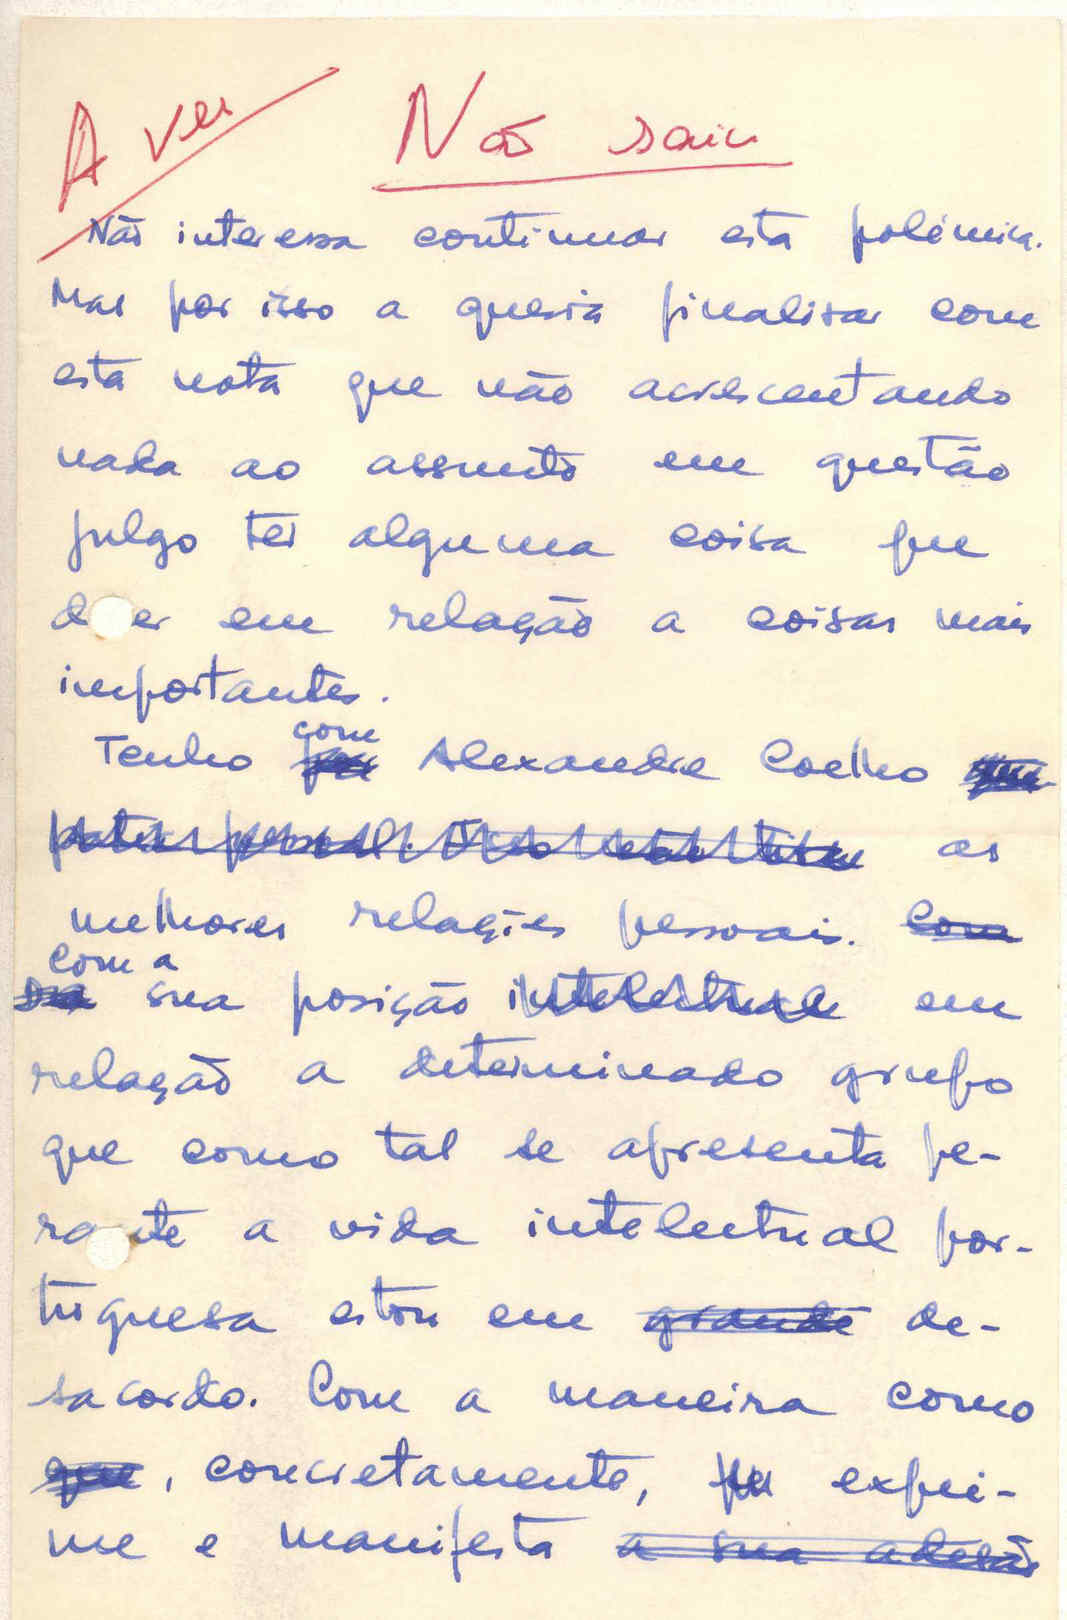 A ver
Não saiu
Não interessa continuar esta polémica.
Mas por isso a queria finalisar com
esta nota que não acrescentando
nada ao assunto em questão
julgo ter alguma coisa que
d er em relação a coisas mais
importantes.
com
Tenho Alexandre Coelho
as
melhores relações pessoais. Com
com a
sua posição intelectual em
relação a determinado grupo
que como tal se apresenta pe-
rante a vida intelectual por-
tuguesa estou em grande de-
sacordo. Com a maneira como
que, concretamente, expri-
me e manifesta a sua adesão